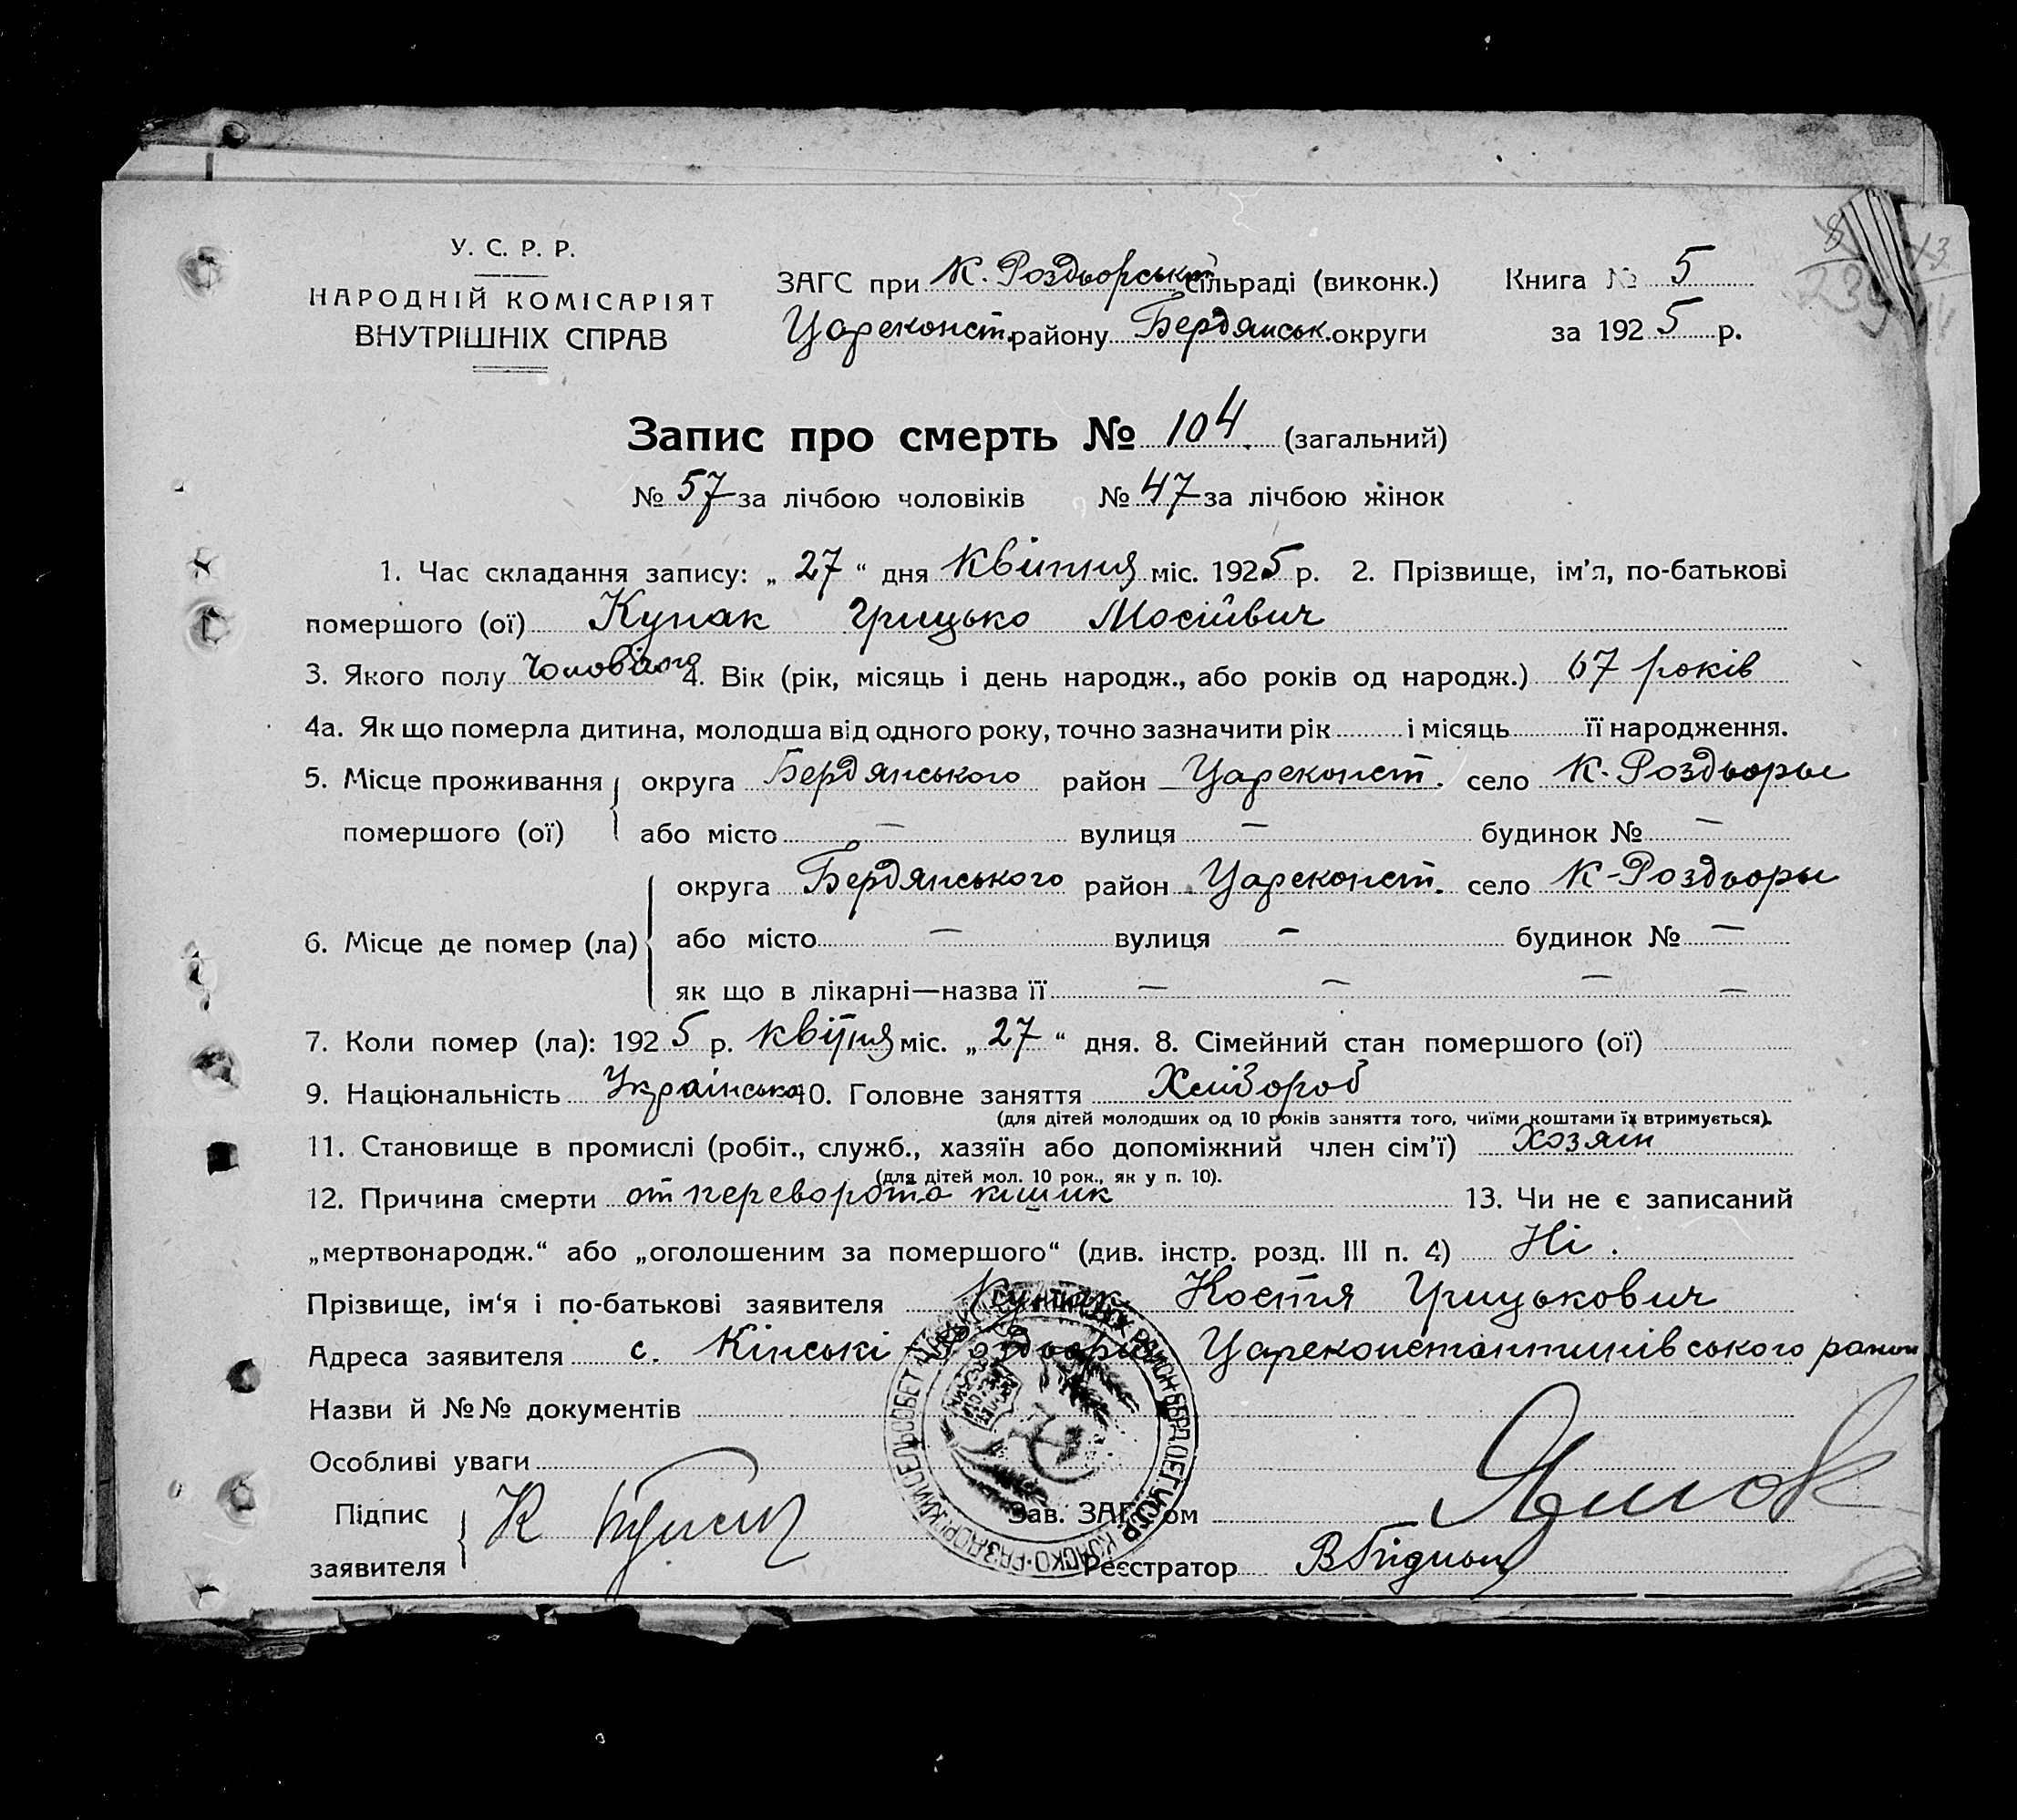 У. С. Р. Р.
НАРОДНІЙ КОМІСАРІЯТ
ВНУТРІШНІХ СПРАВ
ЗАГС при К. Роздьорській сільраді (виконк.)
Цареконст. району Бердянськ. округи
Книга № 5
за 1925 р.
239
Запис про смерть № 104. (загальний)
№ 57 за лічбою чоловіків № 47 за лічбою жінок
1. Час складання запису: „ 27 “ дня Квітня міс. 1925 р. 2. Прізвище, ім’я, по-батькові
помершого (ої) Купак Грицько Мосійвич
3. Якого полу 4. Вік (рік, місяць і день народж., або років од народж.) 67 років
4а. Як що померла дитина, молодша від одного року, точно зазначити рік і місяць її народження.
5. Місце проживання округа Бердянського район Цареконст. село К. Роздьоры
помершого (ої) або місто — вулиця — будинок № —
округа Бердянського район Цареконст. село К-Роздьоры
6. Місце де помер (ла) або місто — вулиця — будинок № —
як що в лікарні—назва її — — — —
7. Коли помер (ла): 1925 р. квітня міс. „ 27 “ дня. 8. Сімейний стан помершого (ої)
9. Національність Українська 10. Головне заняття Хлібороб
(для дітей молодших од 10 років заняття того, чиїми коштами їх втримується).
11. Становище в промислі (робіт., служб., хазяїн або допоміжний член сім’ї) Хозяин
(для дітей мол. 10 рок., як у п. 10).
12. Причина смерти от переворота кишик 13. Чи не є записаний
„мертвонародж.“ або „оголошеним за помершого“ (див. інстр. розд. III п. 4) Ні.
Прізвище, ім‘я і по-батькові заявителя Купак Костя Грицькович
Адреса заявителя с. Кінські Роздьори Цареконстантинівського район
Назви й №№ документів
Особливі уваги
Підпис
заявителя К
Зав. ЗАГСом
Реєстратор